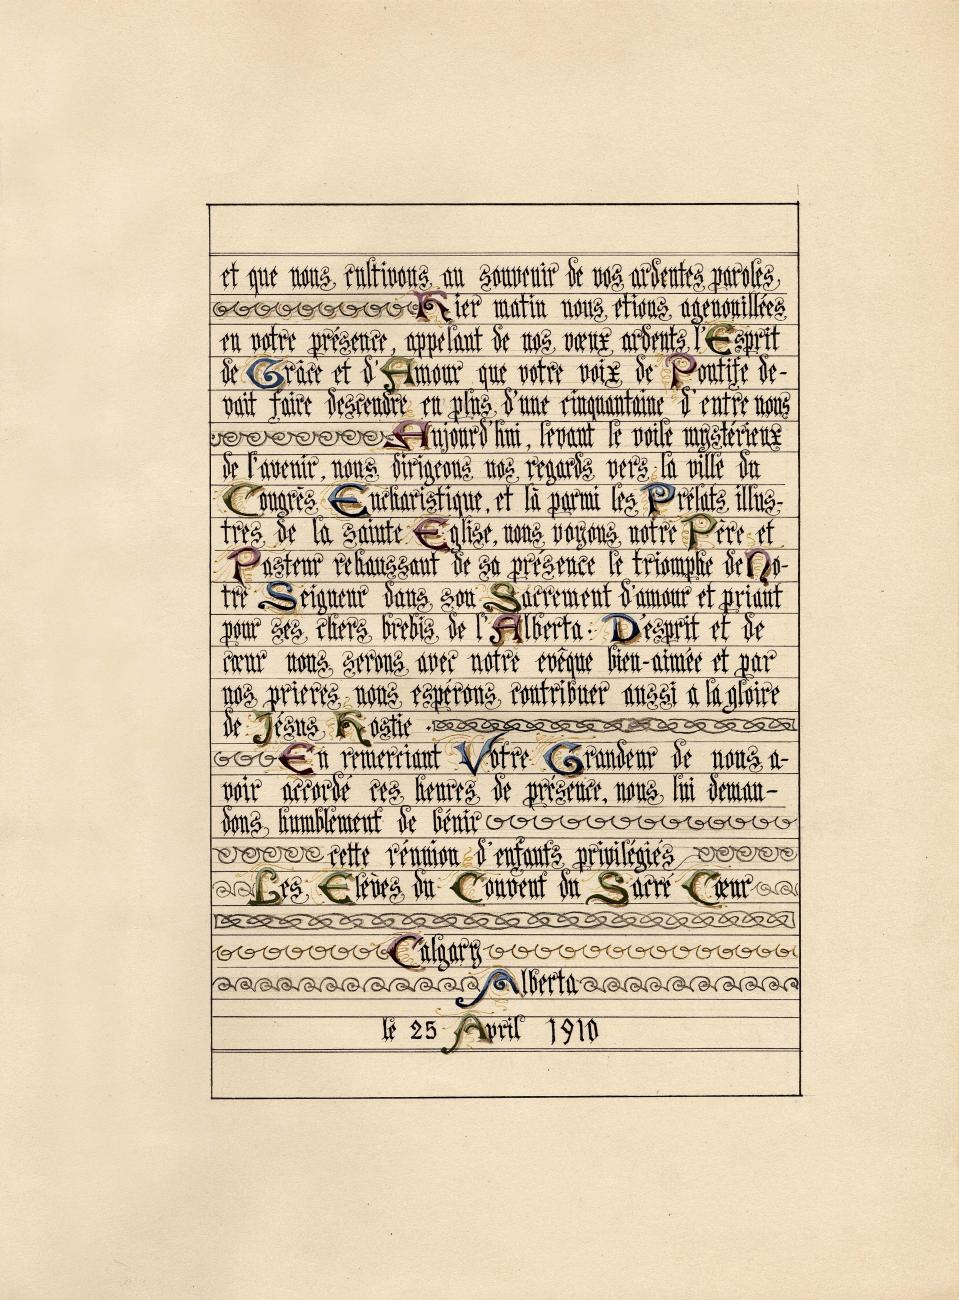 et que nous cultivons au souvenir de vos ardentes paroles.
Hier matin nous etions agenouillées
en votre présence, appelant de nos vœux ardents l'Esprit
de Grâce et d'Amour que votre voix de Pontife de-
vait faire descendre en plus d'une cinquantaine d'entre nous
Aujourd'hui, levant le voile mystérieux
de l'avenir, nous dirigeons nos regards vers la ville du
Congrès Eucharistique, et là parmi les Prélats illus-
tres de la sainte Eglise, nous voyons notre Père et
Pasteur rehaussant de sa présence le triomphe de No-
tre Seigneur dans son Sacrement d'amour et priant
pour ses chers brebis de l'Alberta: Desprit et de
cœur nous serons avec notre evêque bien-aimée et par
nos prieres nous espérons contribuer aussi a la gloire
de Jésus Hostie.
En remerciant Votre Grandeur de nous a-
voir accordé ces heures de présence, nous lui deman-
dons humblement de bénir
cette réunion d'enfants privilégiés
Les Elèves du Couvent du Sacré Cœur
Calgary
Alberta
le 25 Avril 1910